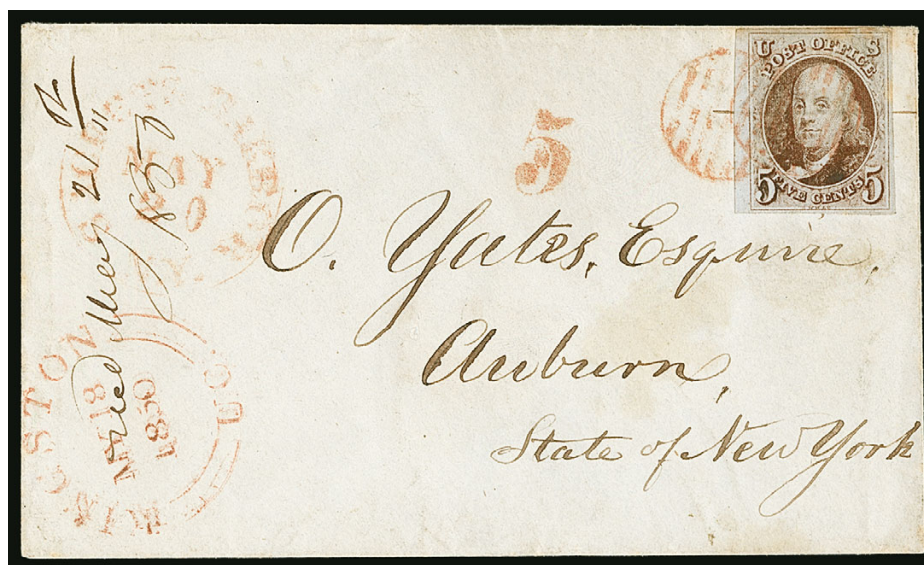 U S
POST OFFICE
5 FIVE CENTS 5
5
O. Yates, Esquire,
Auburn,
State of New York
May 21
KINGSTON
MY 18
1850
U.C.